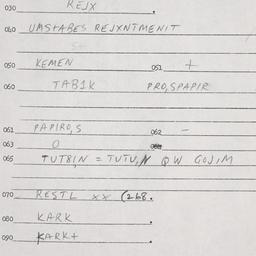 030 REJX .
040 UMSTABES REJXNTMENIT
050 KEMEN 051 +
060 TAB1K PRO,SPAPIR
061 PAPIRO,S 062 -
063 O
065 TUT8IN = TUTU,N QW GOJIM
070 RESTL xx (268.
080 KARK .
090 KARK+ .